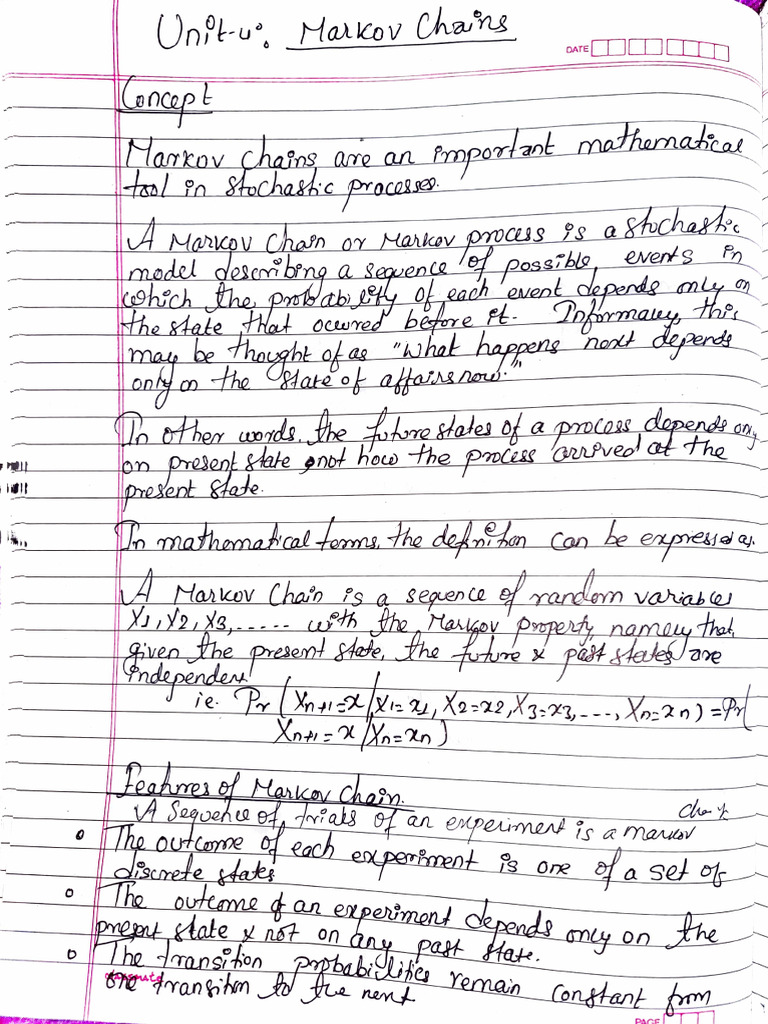 Unit-4: Markov Chains
DATE
Concept
Markov Chains are an important mathematical
tool in stochastic processes.
A Markov Chain or Markov process is a stochastic
model describing a sequence of possible events in
which the probability of each event depends only on
the state that ocurred before it. Informally, this
may be thought of as "What happens next depends
only on the state of affairs now."
In other words, the future states of a process depends only
on present state, not how the process arrived at the
present state.
In mathematical terms, the definition can be expressed as.
A Markov Chain is a sequence of random variables
X1, X2, X3, ...... with the Markov property, namely that,
given the present state, the future & past states are
independent
ie. Pr (Xn+1=x | X1=x1, X2=x2, X3=x3, ...., Xn=xn) = Pr(
Xn+1=x | Xn=xn)
Features of Markov Chain.
A Sequence of trials of an experiment is a markov
chain if
o The outcome of each experiment is one of a set of
discrete states
o The outcome of an experiment depends only on the
present state & not on any past state.
o The transition probabilities remain constant from
one transition to the next
PAGE